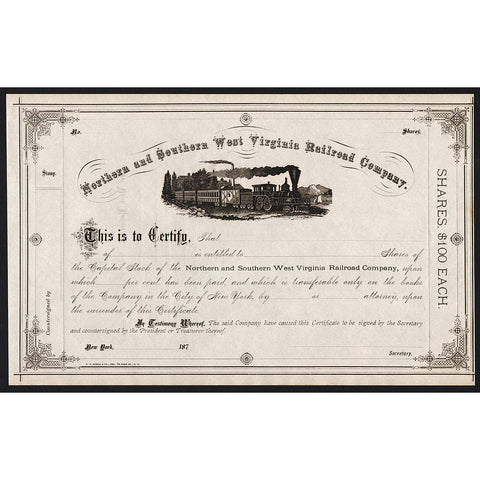 No.
Shares.
Northern and Southern West Virginia Railroad Company.
Stamp.
This is to Certify, That
of is entitled to Shares of
the Capital Stock of the Northern and Southern West Virginia Railroad Company, upon
which per cent has been paid, and which is transferable only on the books
of the Company in the City of New York, by or attorney, upon
the surrender of this Certificate.
In Testimony Whereof, The said Company have caused this Certificate to be signed by the Secretary
and countersigned by the President or Treasurer thereof.
New York, 187
Secretary.
Countersigned by
SHARES, $100 EACH.